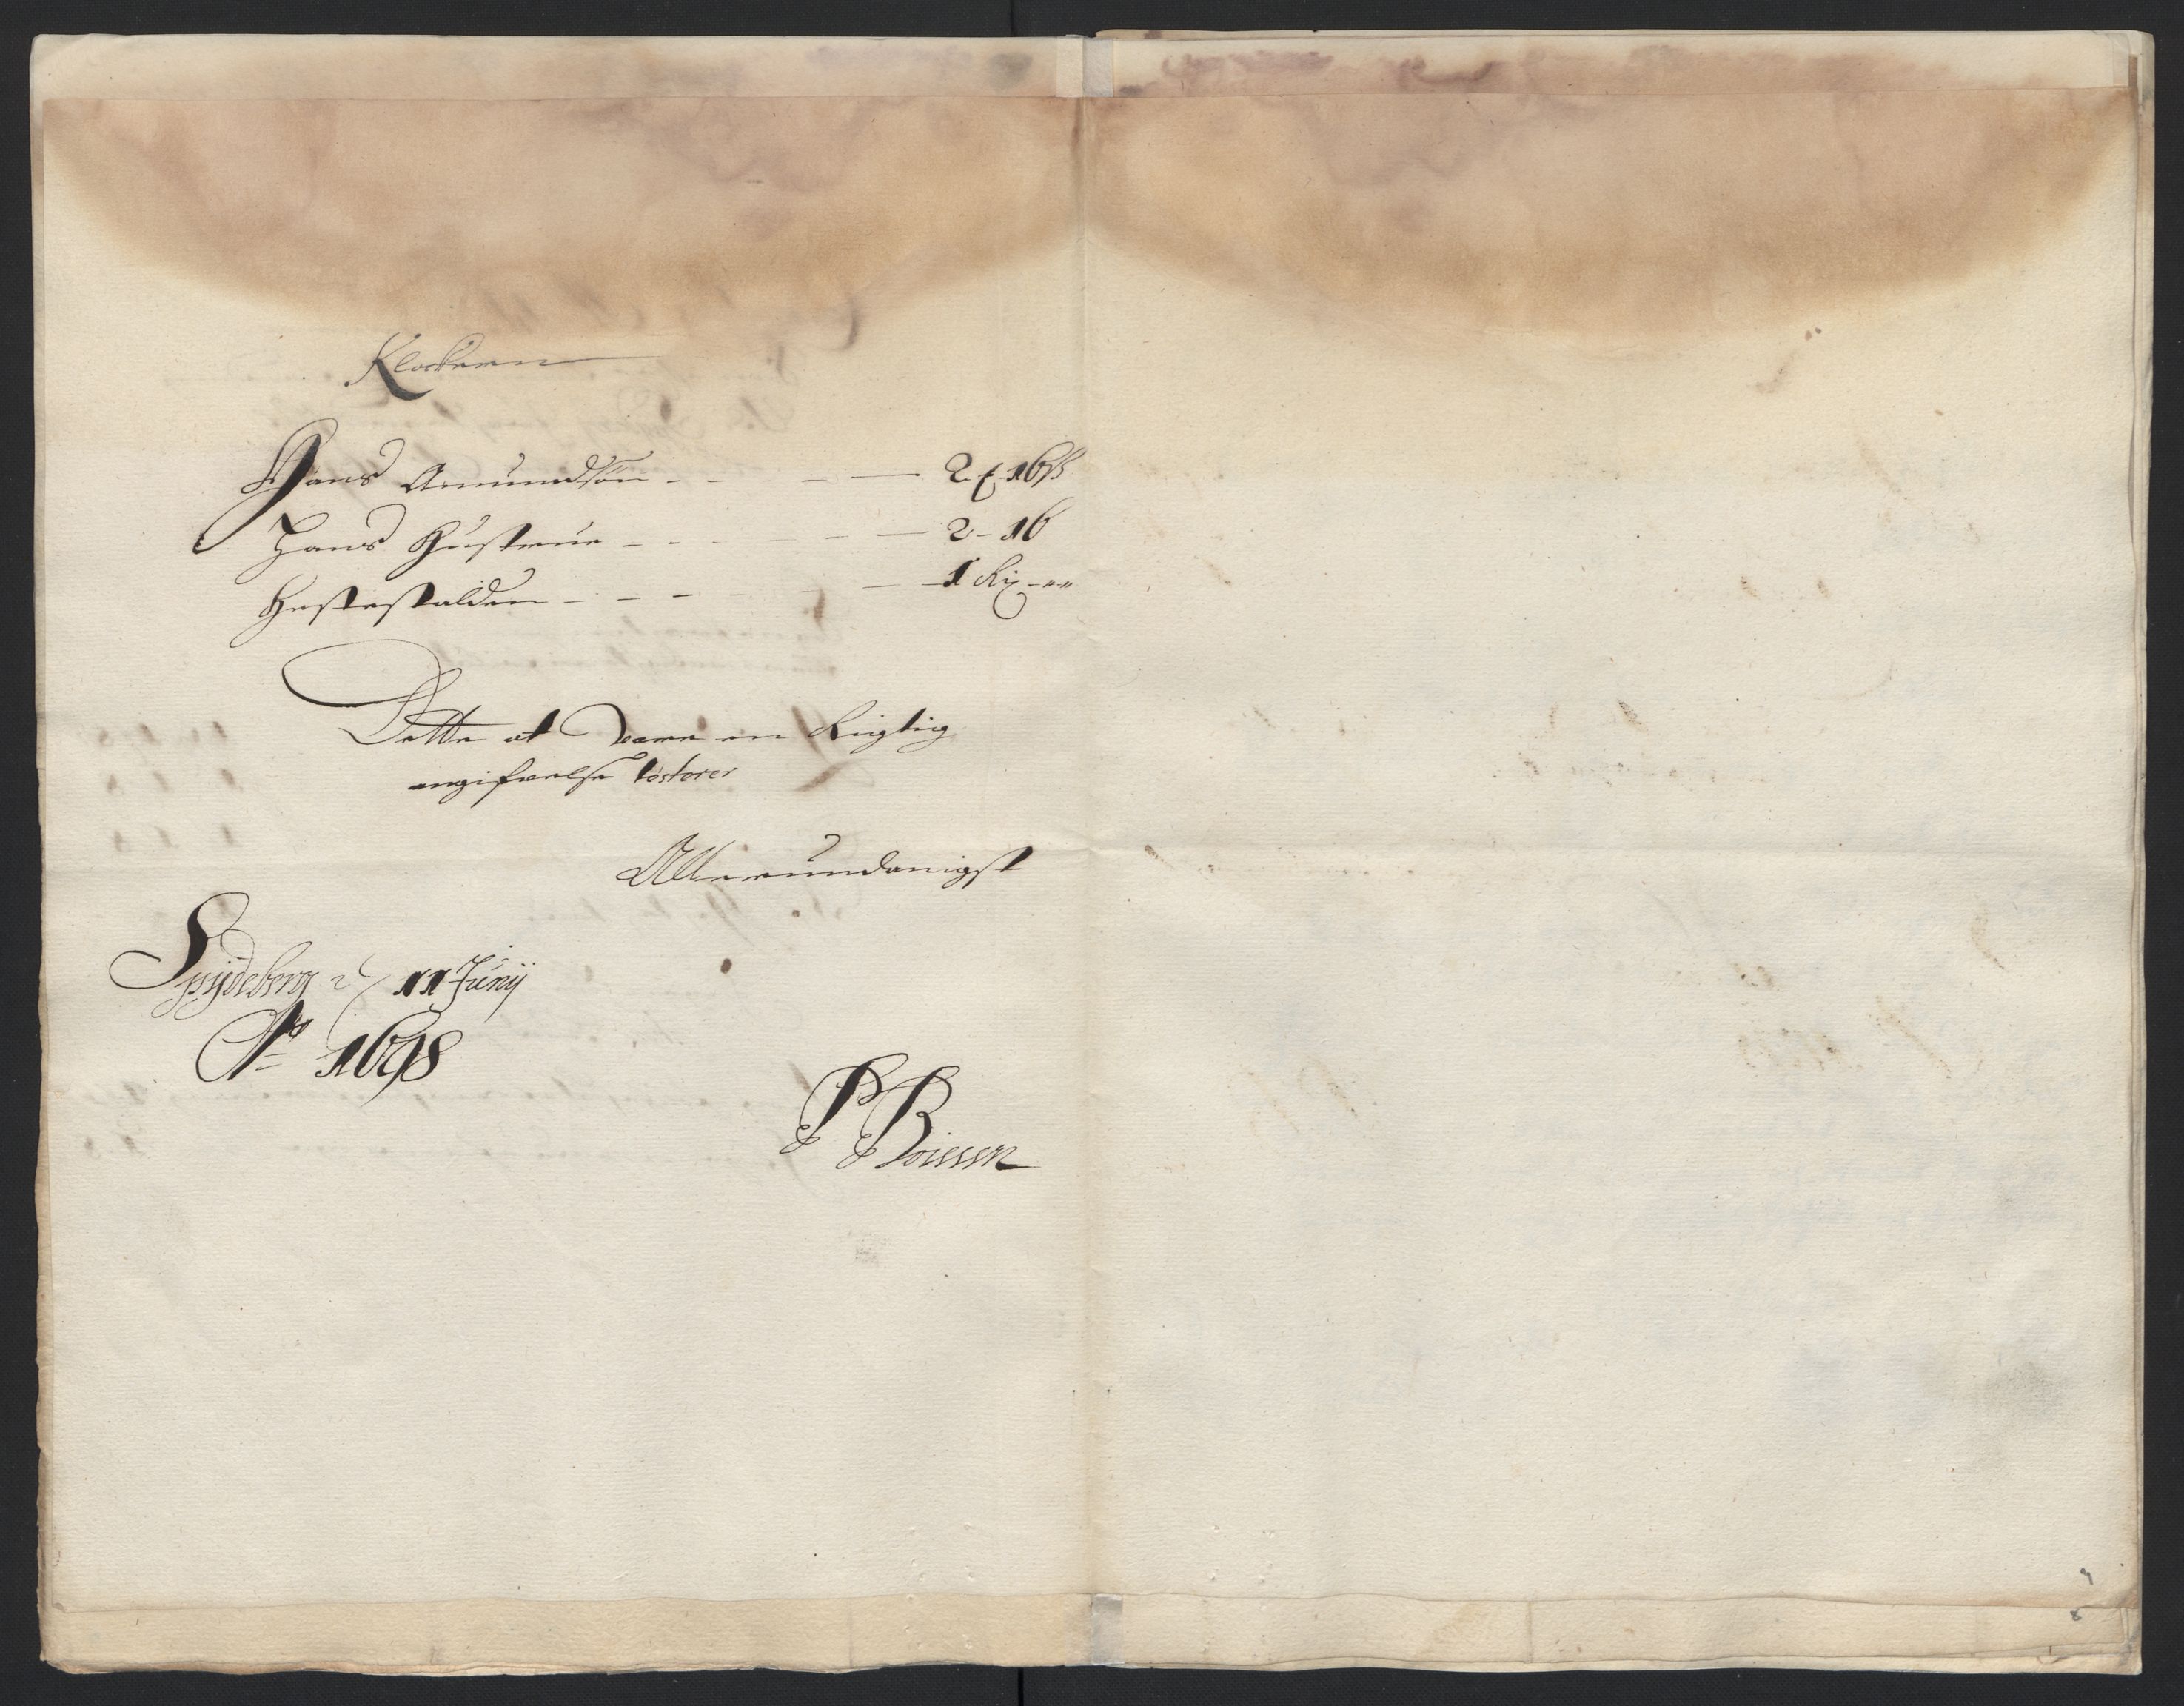 Klockeren
Hans Amundsøn - - - — 2 ꝼ 16 ß
Hans Hustrue - - - - - — 2 - 16
Hestestalden - - - - - — 1 Rix - „ „
Dette at være en Rigtig
angifvelse tosterer
Allerundanigst
Spydeberg d 11 Junij
Ao 1698
P Boiesen